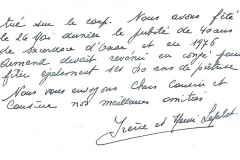 tué sur le coup. Nous avons fêté
le 24 Mai dernier le Jubilé de 40 ans
de sacerdoce d'Oscar et en 1976
Armand devait revenir en congé pour
fêter également ses 30 ans de prêtrise
Nous vous envoyons Chers Cousin et
Cousine nos meilleures amitiés
Irène et Henri